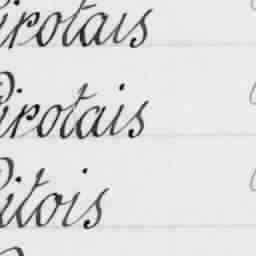 Pirotais
Pirotais
Pitois